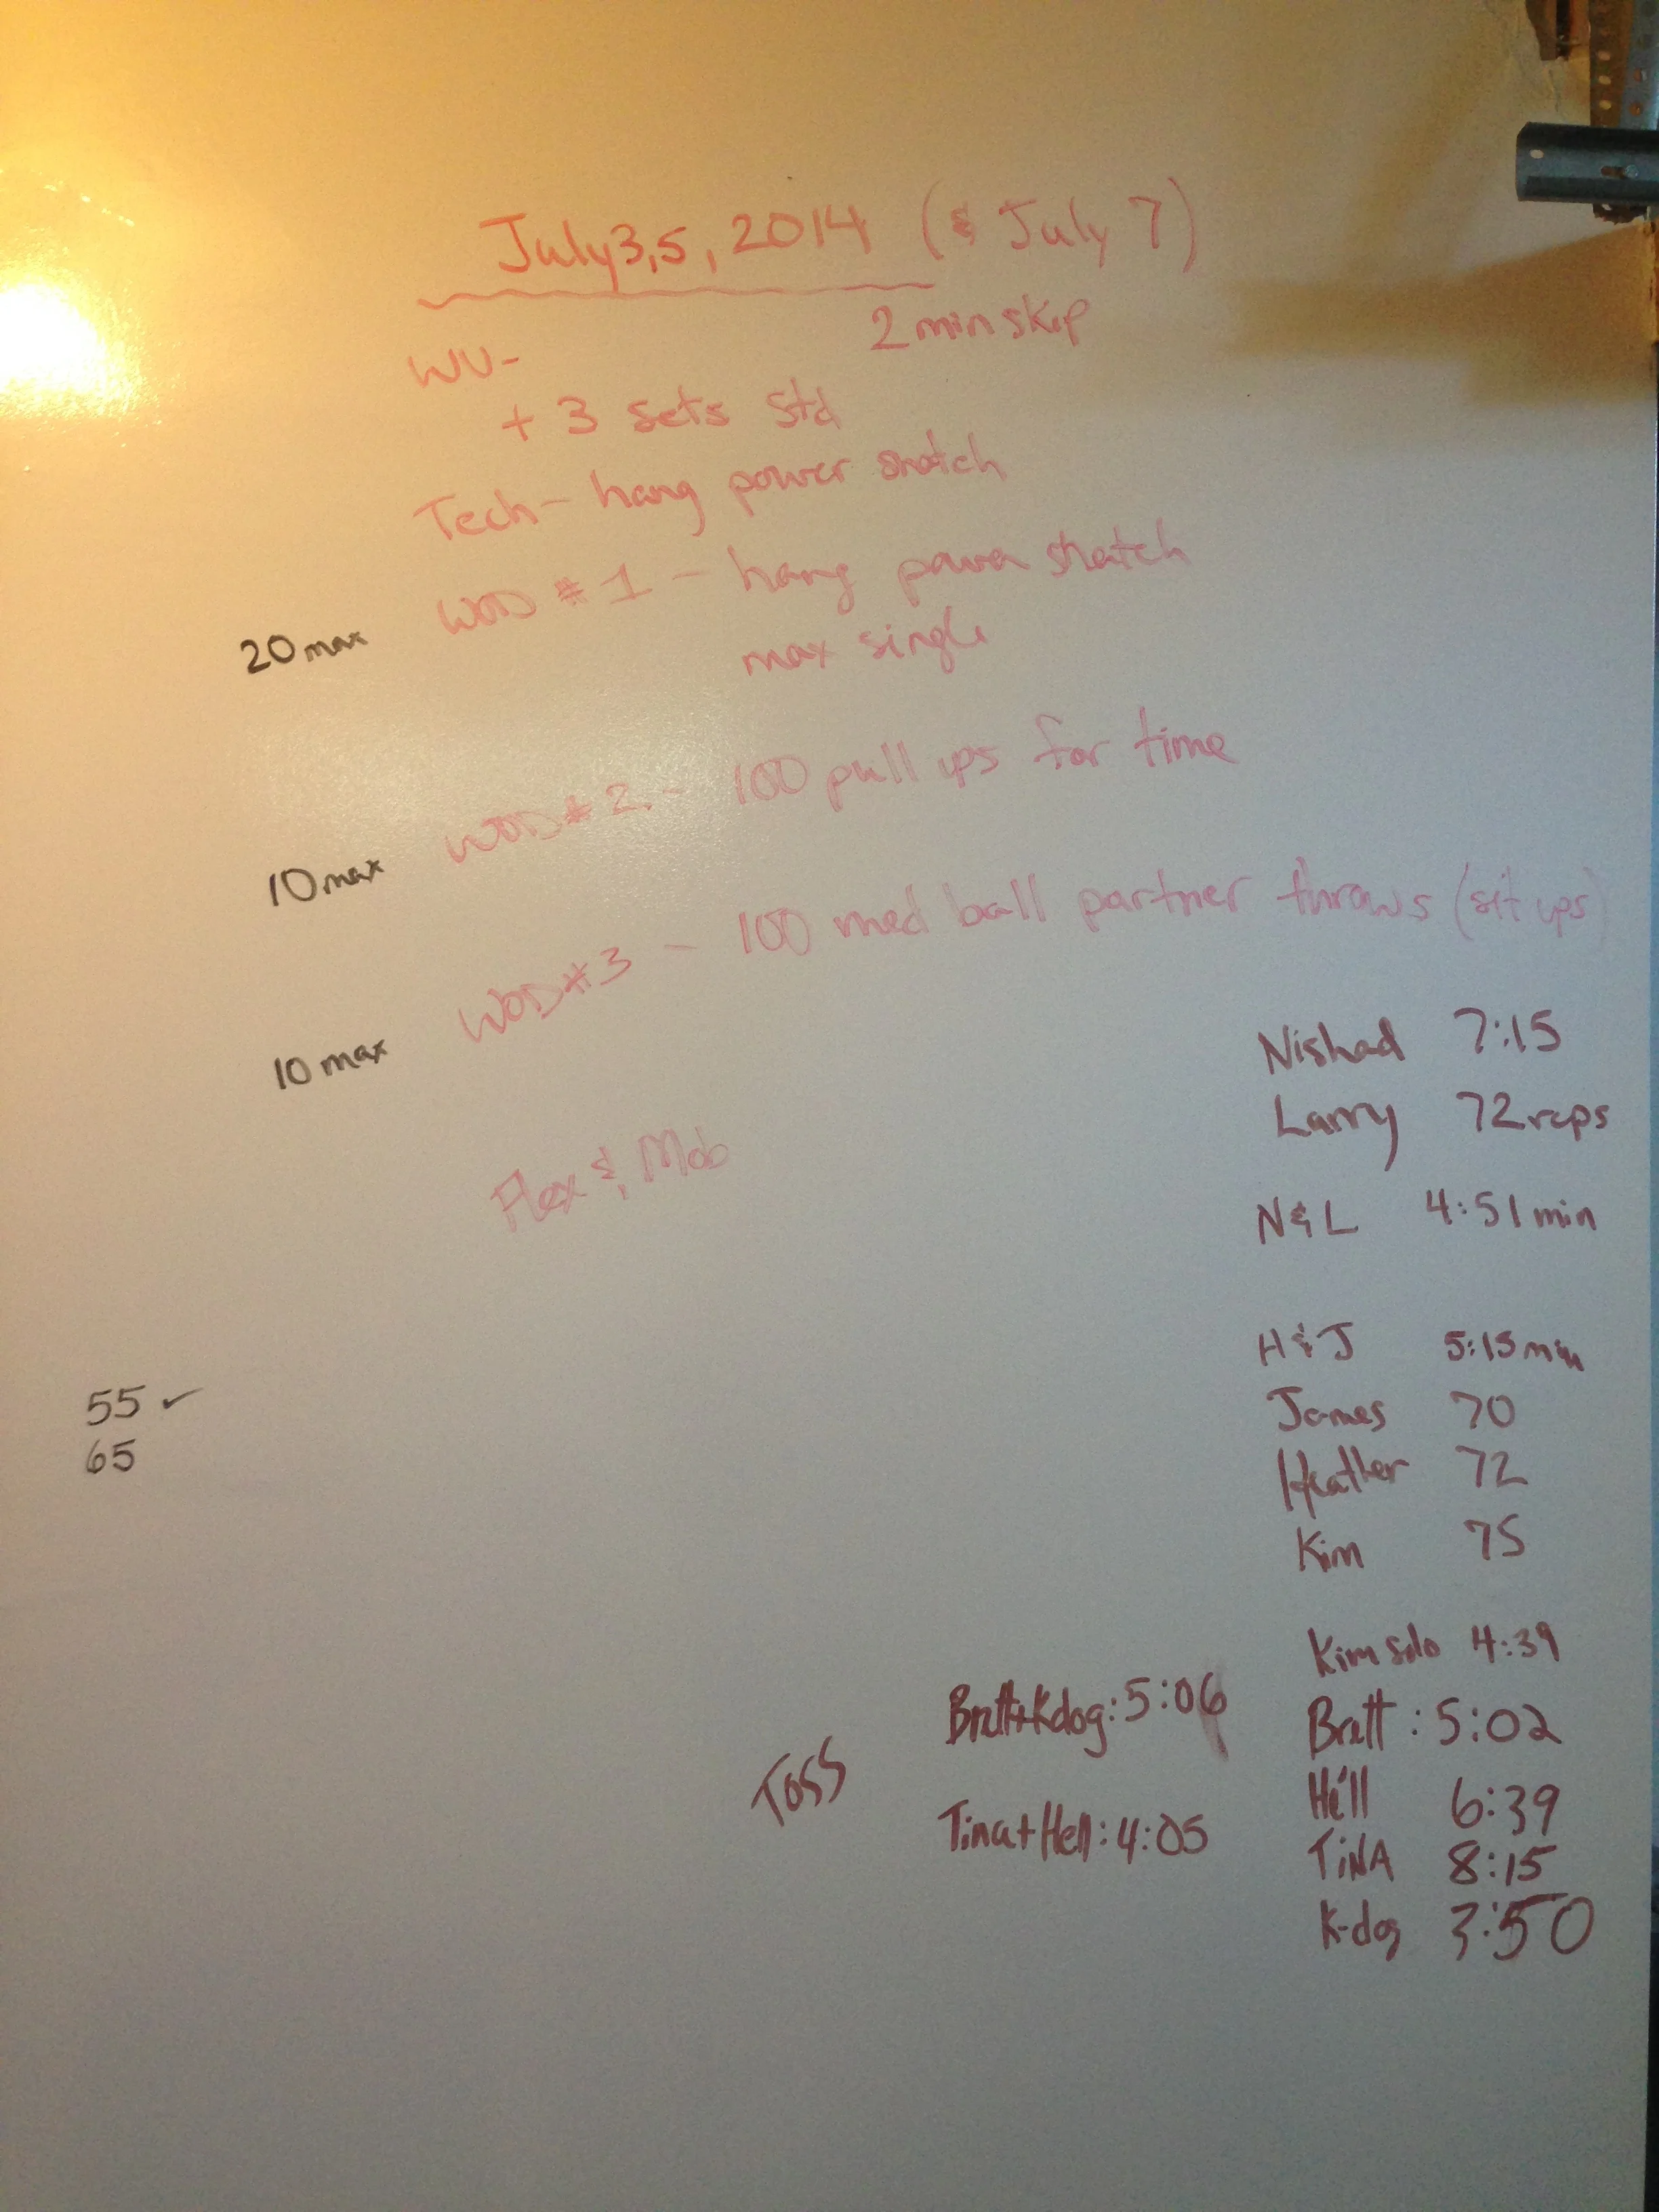 July 3,5, 2014 (& July 7)
2 min skip
WU-
+ 3 sets std
Tech - hang power snatch
WOD #1 - hang power snatch
20 max
max single
WOD #2 - 100 pull ups for time
10 max
WOD #3 - 100 med ball partner throws (sit ups)
10 max
Nishad 7:15
Larry 72 reps
Flex & Mob
N & L 4:51 min
H & J 5:15 min
55 ✓
James 70
65
Heather 72
Kim 75
Kim solo 4:39
Brett+Kdog: 5:06
Brett : 5:02
TOSS
Hell 6:39
Tina+Hell: 4:05
TiNA 8:15
K-dog 3:50